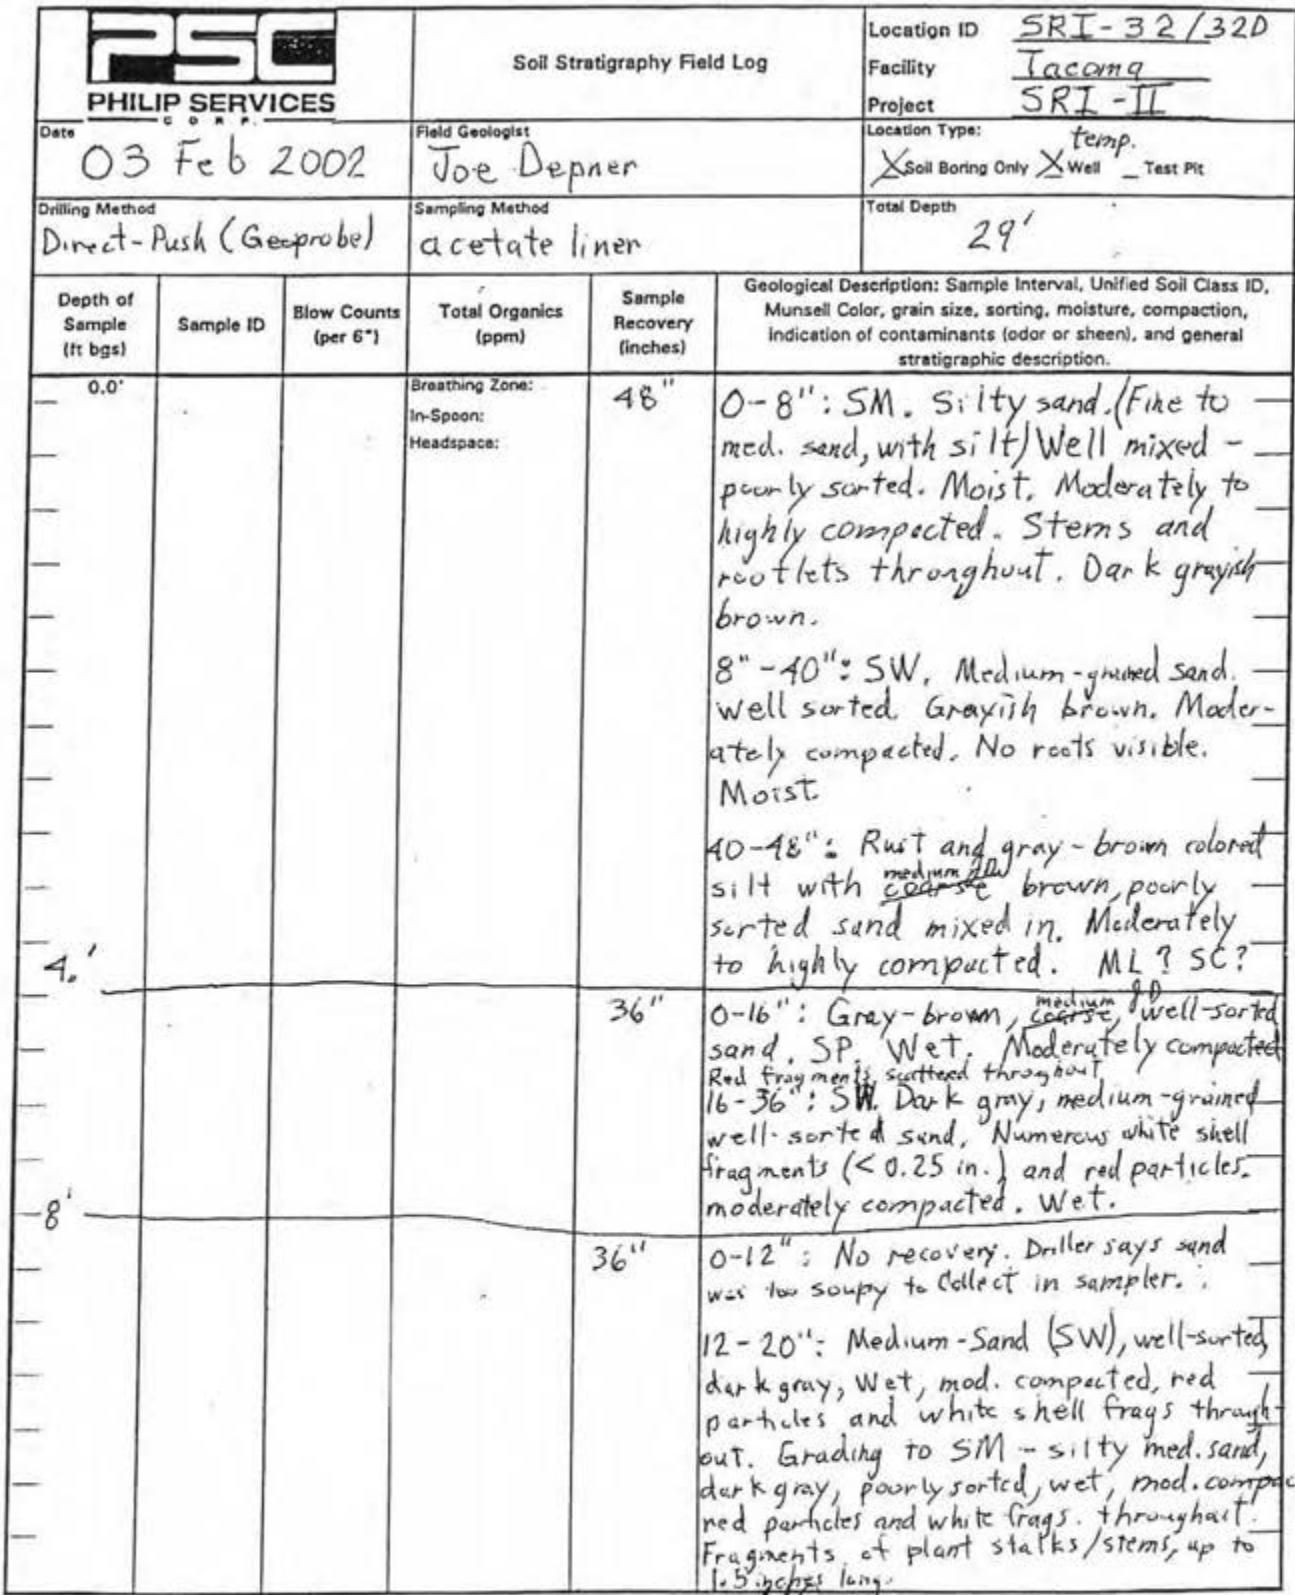 PSC
PHILIP SERVICES
CORP.
Soil Stratigraphy Field Log
Location ID SRI-32/32D
Facility Tacoma
Project SRI-II
Date
03 Feb 2002
Field Geologist
Joe Depner
Location Type: temp.
X Soil Boring Only X Well _ Test Pit
Drilling Method
Direct-Push (Geoprobe)
Sampling Method
acetate liner
Total Depth
29'
Depth of
Sample
(ft bgs)
Sample ID
Blow Counts
(per 6")
Total Organics
(ppm)
Sample
Recovery
(inches)
Geological Description: Sample Interval, Unified Soil Class ID,
Munsell Color, grain size, sorting, moisture, compaction,
indication of contaminants (odor or sheen), and general
stratigraphic description.
0.0'
Breathing Zone:
In-Spoon:
Headspace:
48"
0-8": SM. Silty sand. (Fine to
med. sand, with silt) Well mixed -
poorly sorted. Moist. Moderately to
highly compacted. Stems and
rootlets throughout. Dark grayish
brown.
8"-40": SW. Medium-grained sand.
well sorted. Grayish brown. Moder-
ately compacted. No roots visible.
Moist.
40-48": Rust and gray-brown colored
medium JD
silt with coarse brown, poorly
sorted sand mixed in. Moderately
to highly compacted. ML? SC?
4.'
36"
medium JD
0-16": Gray-brown, coarse, well-sorted
sand. SP. Wet. Moderately compacted
Red fragments scattered throghout
16-36": SW. Dark gray, medium-grained
well-sorted sand. Numerous white shell
fragments (<0.25 in.) and red particles.
moderately compacted. Wet.
8'
36"
0-12": No recovery. Driller says sand
was too soupy to collect in sampler.
12-20": Medium-Sand (SW), well-sorted,
dark gray, Wet, mod. compacted, red
particles and white shell frags through-
out. Grading to SM - silty med. sand,
dark gray, poorly sorted, wet, mod. compac
red particles and white frags. throughout.
Fragments of plant stalks/stems, up to
1.5 inches long.